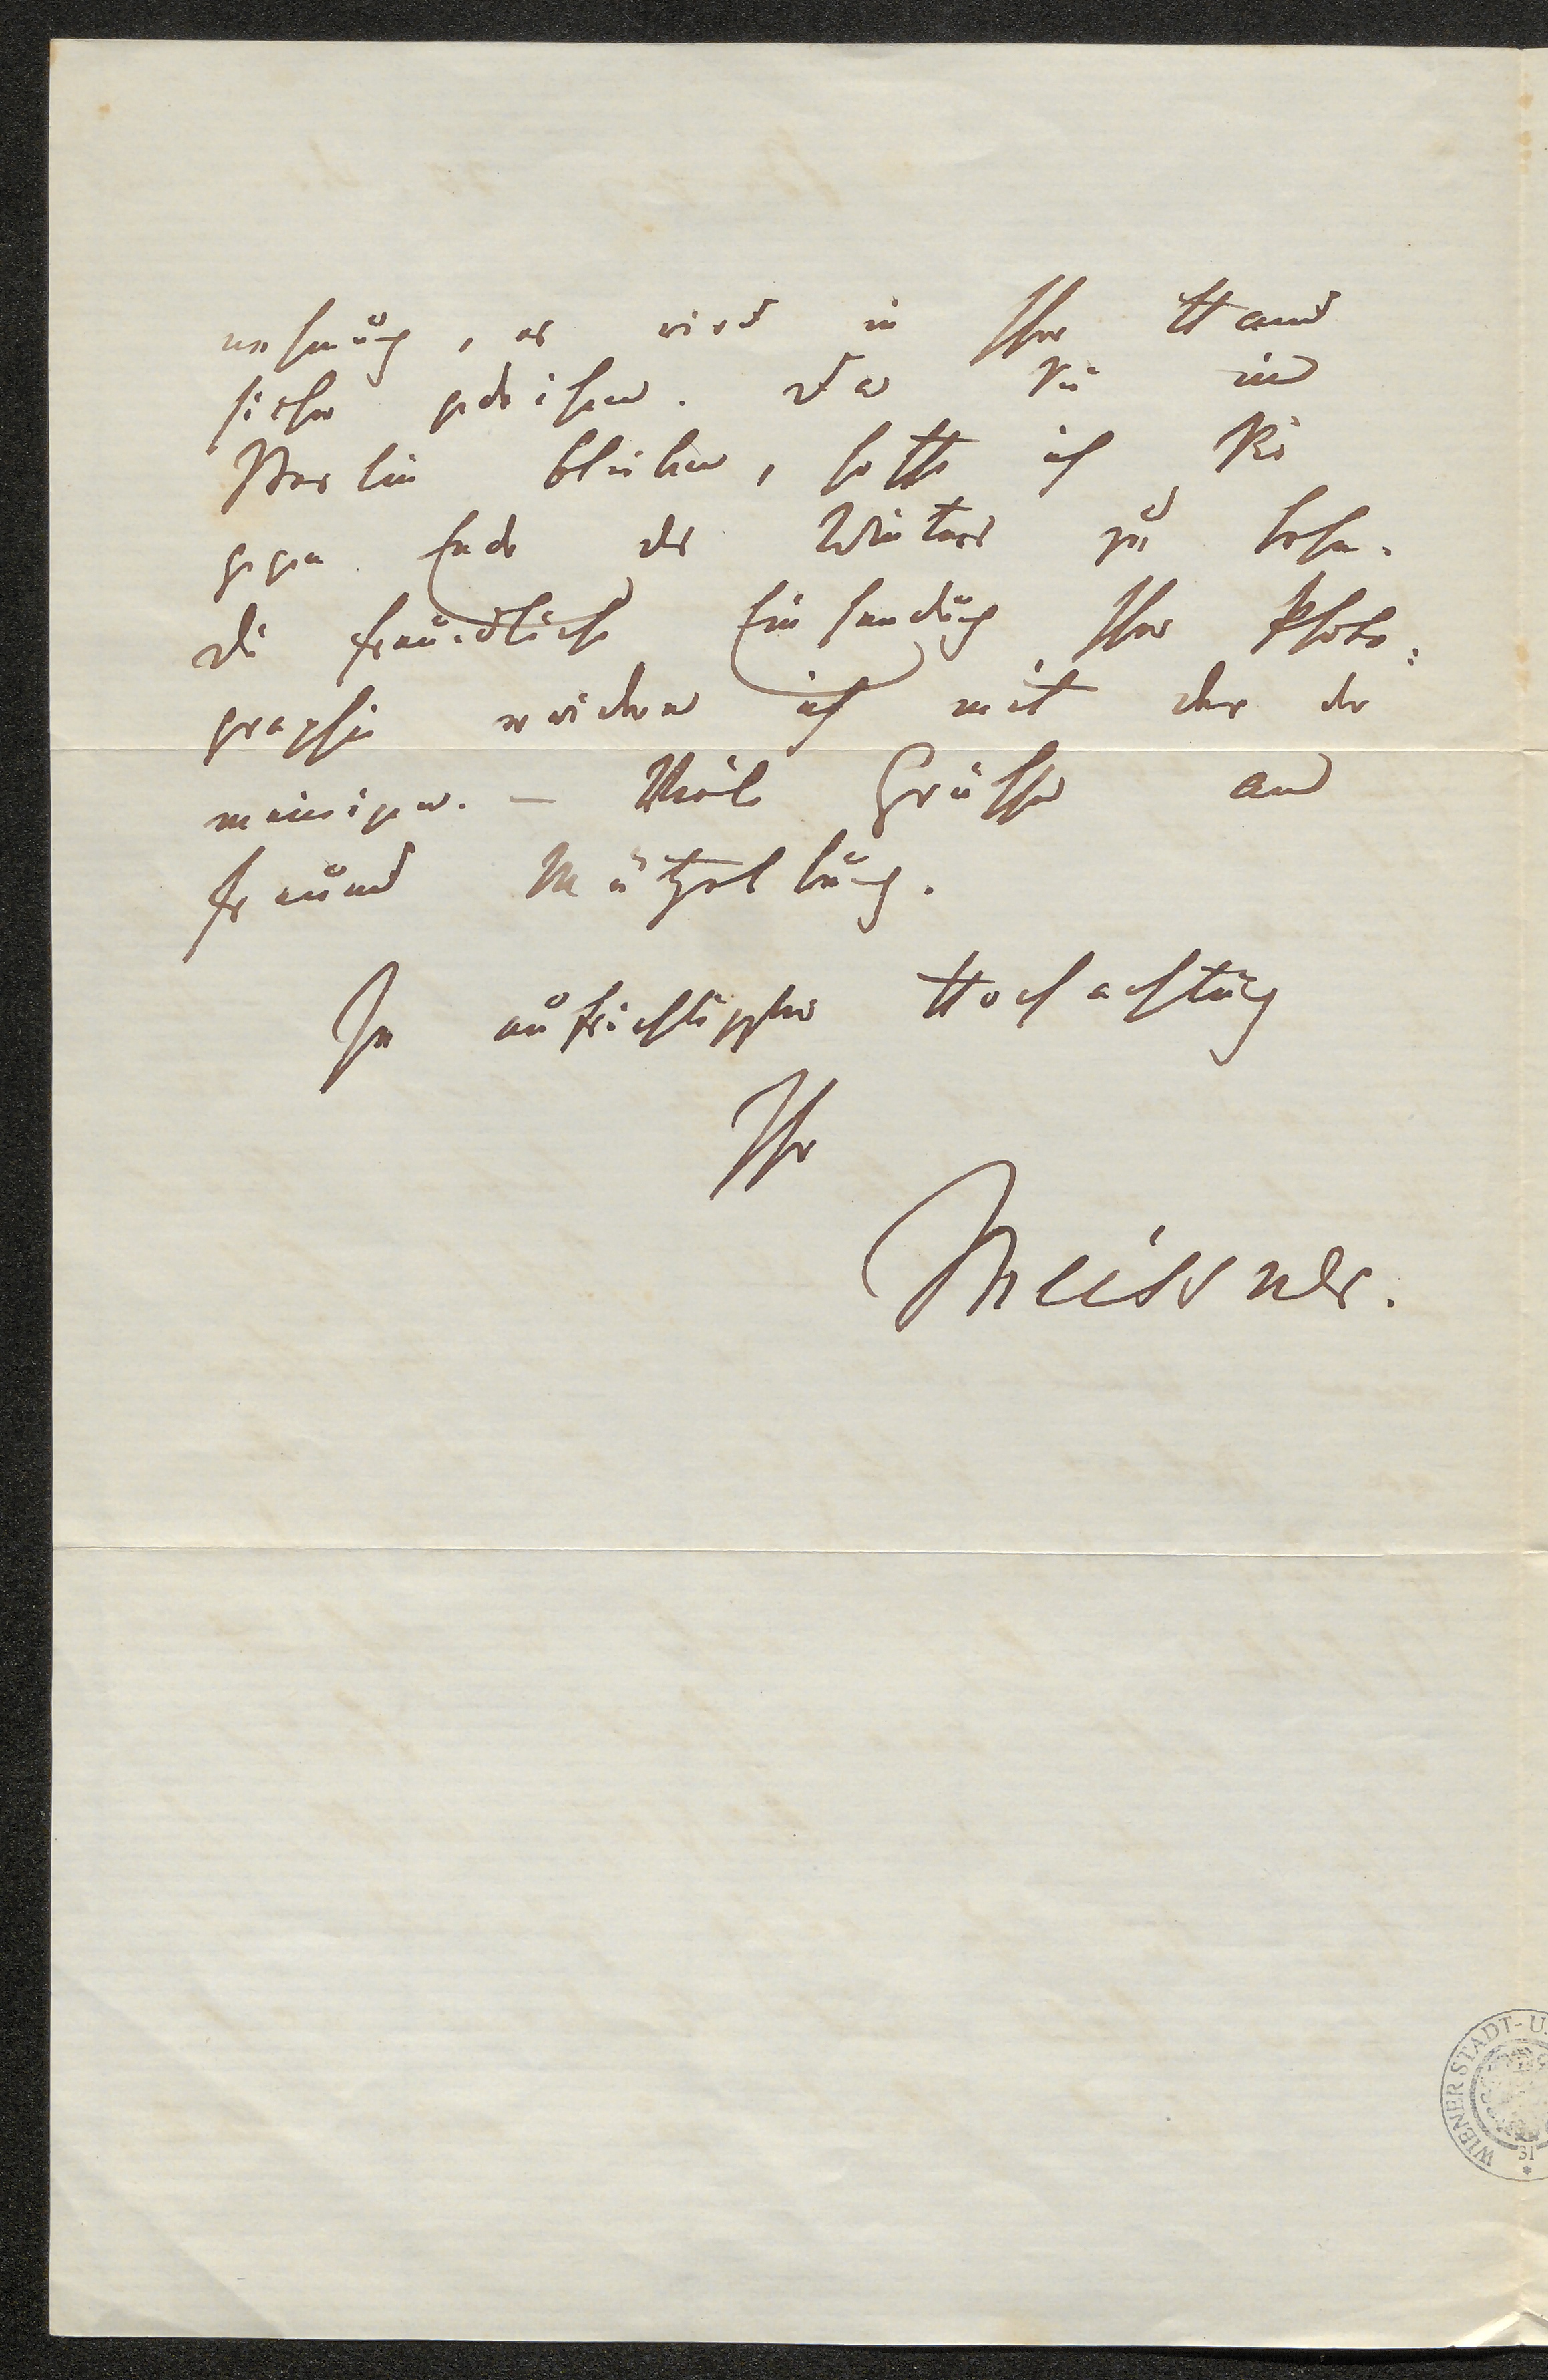 nehmung, es wird in Ihrer Hand
sicher gedeihen. Da Sie in
Berlin bleiben, hoffe ich Sie
gegen Ende des Winters zu sehen.
Die freundliche Einsendung Ihrer Photo:
graphie erwidere ich mit der
meinigen. — Viele Grüsse an
Freund Mützelburg.
In aufrichtigster Hochachtung
Ihr
Meissner.
WIENER STADT- U.
31